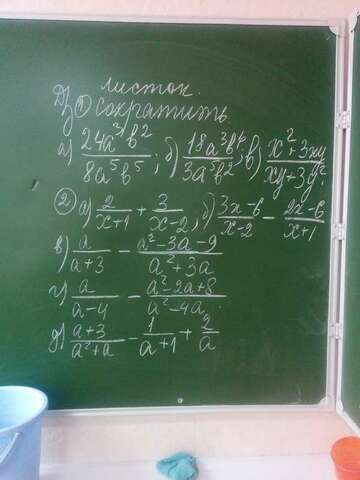 листок.
ДЗ ① сократить
а) 24a³b² / 8a⁵b⁵; б) 18a³b⁶ / 3a⁵b²; в) x²+3xy / xy+3y²
② а) 2/(x+1) + 3/(x-2), б) (3x-6)/(x-2) - (2x-6)/(x+1)
в) a/(a+3) - (a²-3a-9)/(a²+3a)
г) a/(a-4) - (a²-2a+8)/(a²-4a)
д) (a+3)/(a²+a) - 1/(a+1) + 2/a